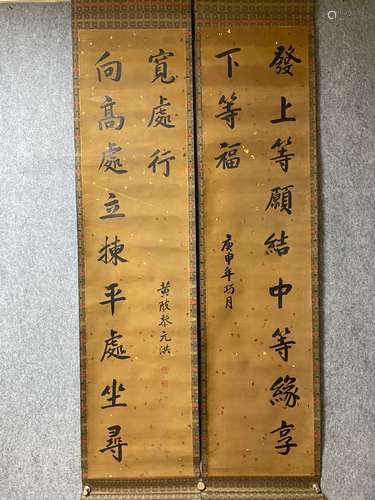 發上等願結中等緣享
下等福
庚申年巧月
向高處立揀平處坐尋
寬處行
黃陂黎元洪